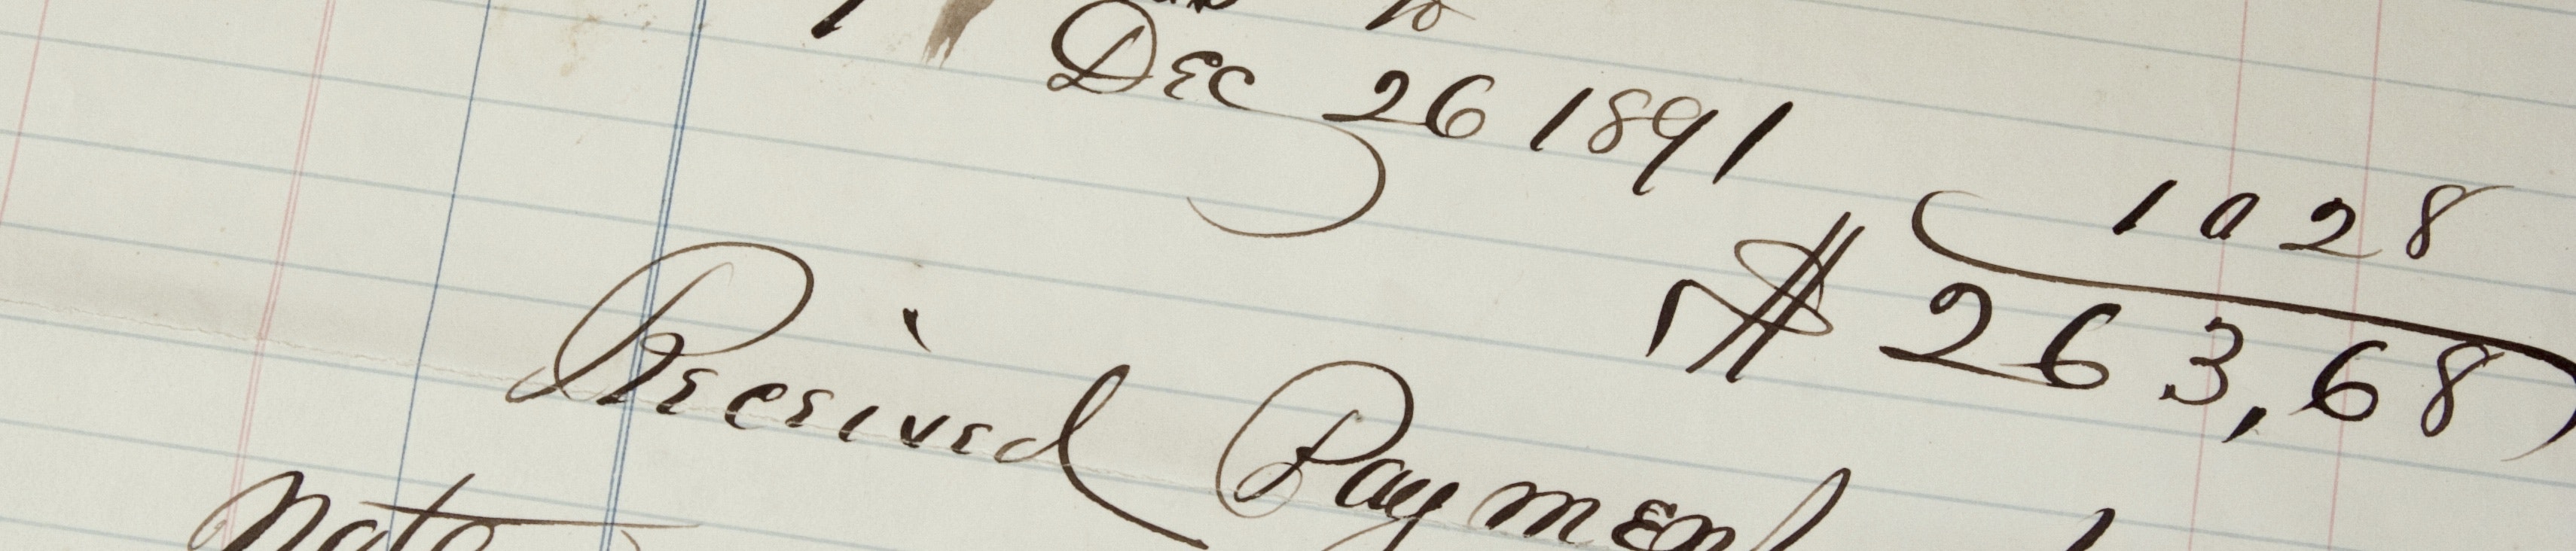 Dec 26 1891
10 28
$ 263,68
Received Payment
Note